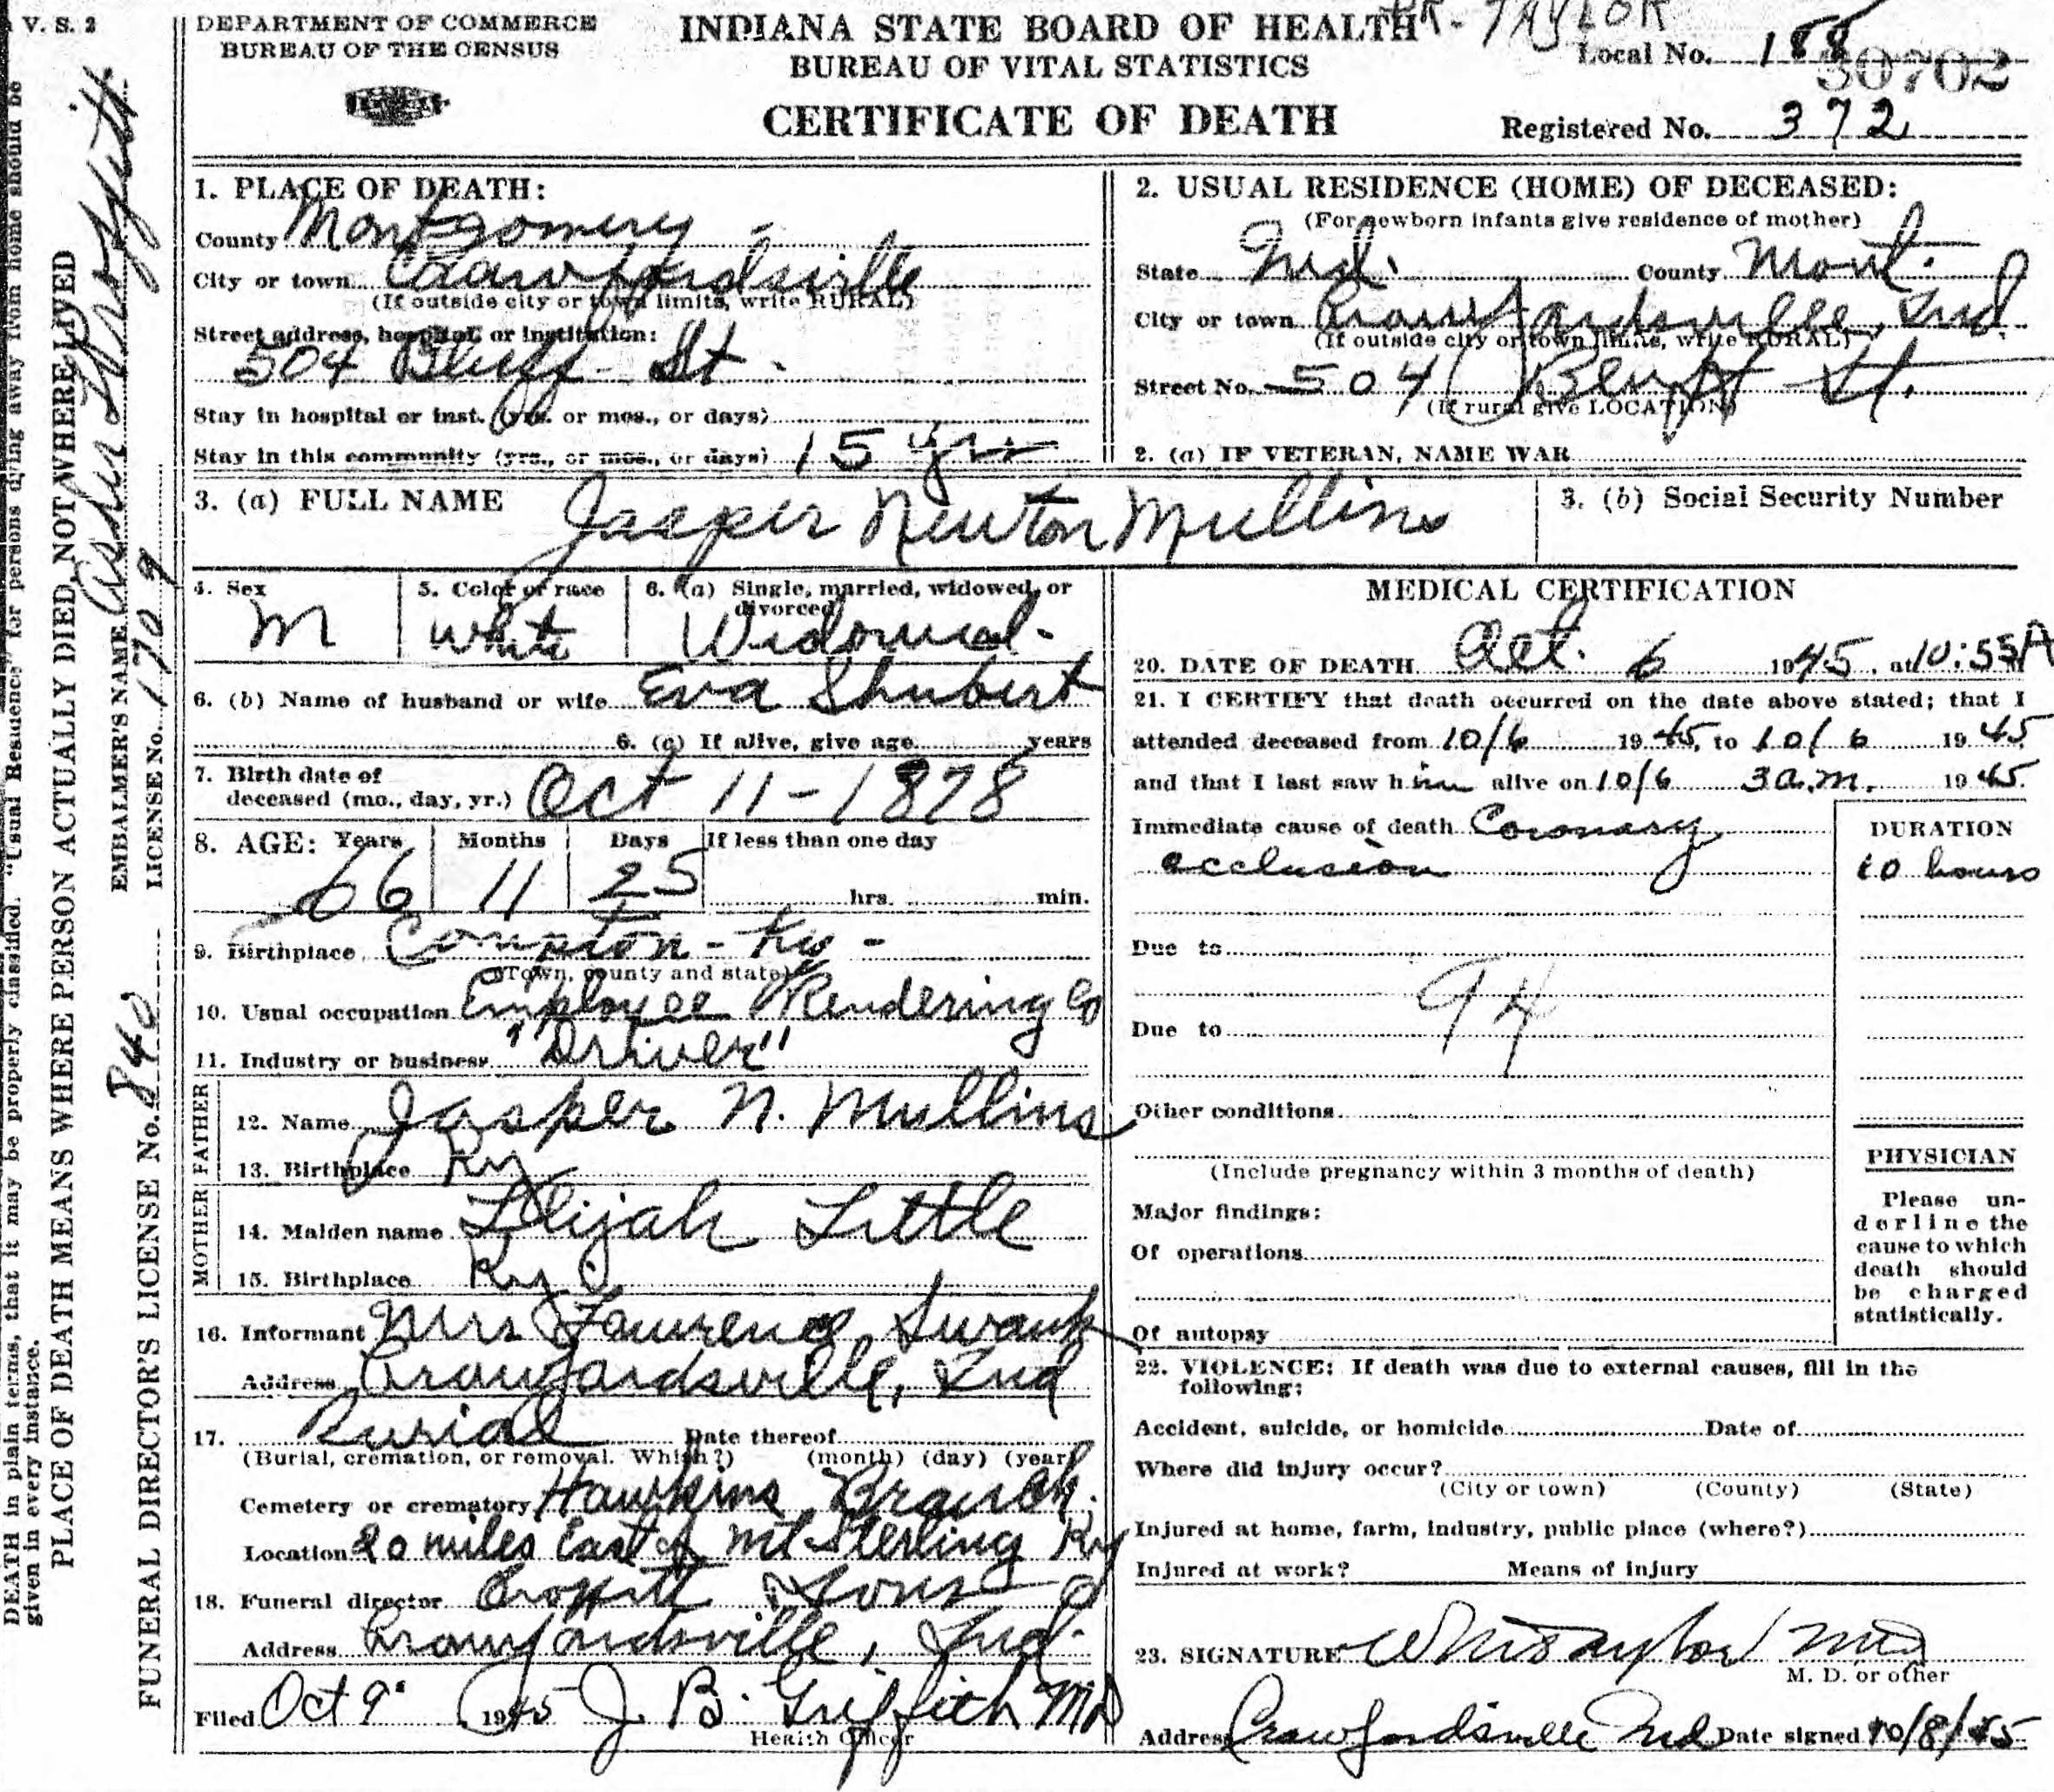 V. S. 2
DEPARTMENT OF COMMERCE
BUREAU OF THE CENSUS
INDIANA STATE BOARD OF HEALTH
BUREAU OF VITAL STATISTICS
CERTIFICATE OF DEATH
DR - TAYLOR
Local No. 188
30702
Registered No. 372
1. PLACE OF DEATH:
County Montgomery
City or town Crawfordsville
(If outside city or town limits, write RURAL)
Street address, hospital, or institution:
504 Bluff St.
Stay in hospital or inst. (yrs. or mos., or days)
Stay in this community (yrs., or mos., or days) 15 yrs
2. USUAL RESIDENCE (HOME) OF DECEASED:
(For newborn infants give residence of mother)
State Ind. County Mont.
City or town Crawfordsville, Ind
(If outside city or town limits, write RURAL)
Street No. 504 Bluff St.
(If rural give LOCATION)
2. (a) IF VETERAN, NAME WAR
3. (a) FULL NAME Jasper Newton Mullins
3. (b) Social Security Number
4. Sex M
5. Color or race White
6. (a) Single, married, widowed, or divorced Widowed.
6. (b) Name of husband or wife Eva Shubert
6. (c) If alive, give age years
7. Birth date of
deceased (mo., day, yr.) Oct 11 - 1878
8. AGE: Years Months Days If less than one day
66 11 25 hrs. min.
9. Birthplace Compton - Ky -
(Town, county and state)
10. Usual occupation Employee Rendering Co
11. Industry or business "Driver"
FATHER
12. Name Jasper N. Mullins
13. Birthplace Ky
MOTHER
14. Maiden name Elijah Little
15. Birthplace Ky
16. Informant Mrs Lawrence Swank
Address Crawfordsville, Ind
17. Burial Date thereof
(Burial, cremation, or removal. Which?) (month) (day) (year)
Cemetery or crematory Hawkins Branch.
Location 20 miles East of Mt Sterling Ky
18. Funeral director Proffitt & Sons
Address Crawfordsville, Ind.
Filed Oct 9 1945 J. B. Griffith MD
Health Officer
MEDICAL CERTIFICATION
20. DATE OF DEATH Oct. 6 1945, at 10:55 A
21. I CERTIFY that death occurred on the date above stated; that I
attended deceased from 10/6 1945, to 10/6 1945
and that I last saw him alive on 10/6 3 a.m. 1945.
Immediate cause of death Coronary
occlusion
DURATION
10 hours
Due to
94
Due to
Other conditions
(Include pregnancy within 3 months of death)
Major findings:
Of operations
Of autopsy
PHYSICIAN
Please un-
derline the
cause to which
death should
be charged
statistically.
22. VIOLENCE: If death was due to external causes, fill in the
following:
Accident, suicide, or homicide Date of
Where did injury occur?
(City or town) (County) (State)
Injured at home, farm, industry, public place (where?)
Injured at work? Means of injury
23. SIGNATURE Taylor MD
M. D. or other
Address Crawfordsville Ind Date signed 10/8/45
DEATH in plain terms, that it may be properly classified. "Usual Residence" for persons dying away from home should be
given in every instance.
PLACE OF DEATH MEANS WHERE PERSON ACTUALLY DIED, NOT WHERE LIVED
EMBALMER'S NAME Asher Proffitt
LICENSE No. 1709
FUNERAL DIRECTOR'S LICENSE No. 840